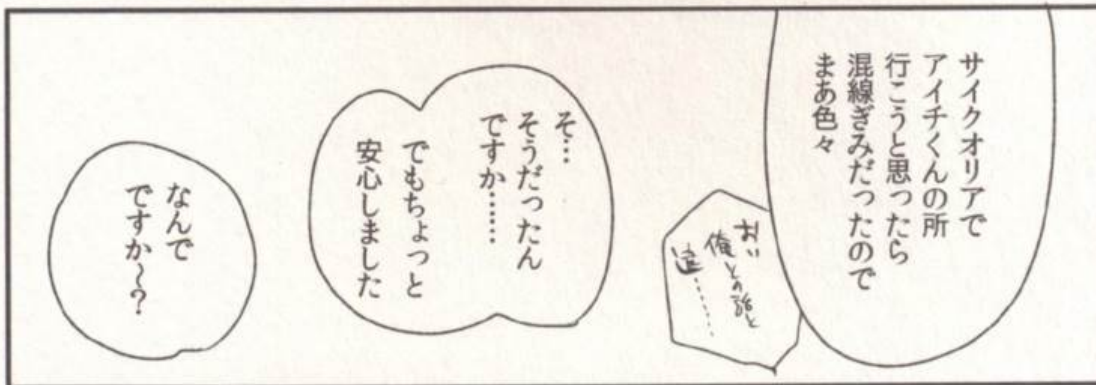 サイクオリアで
アイチくんの所
行こうと思ったら
混線ぎみだったので
まあ色々
おい
俺との話と
違……
そ…
そうだったん
ですか……
でもちょっと
安心しました
なんで
ですか～?